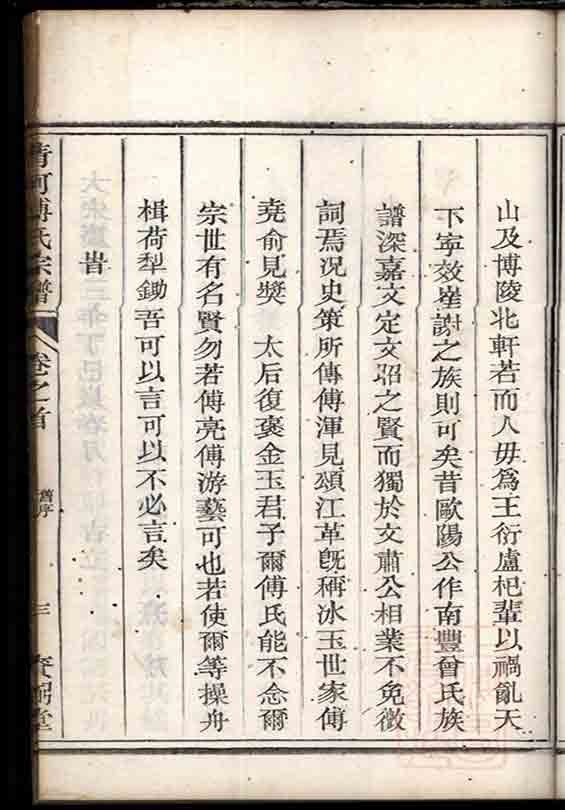 山及博陵北軒若而人毋爲王衍盧杞輩以禍亂天
下寧效崔謝之族則可矣昔歐陽公作南豐曾氏族
譜深嘉文定文昭之賢而獨於文肅公相業不免微
詞焉况史策所傳傅渾見頌江革旣稱冰玉世家傅
堯俞見奬 太后復褒金玉君子爾傅氏能不念爾
宗世有名賢勿若傅亮傅游藝可也若使爾等操舟
楫荷犁鋤吾可以言可以不必言矣
旹
清河傅氏宗譜 卷之首 舊序 三